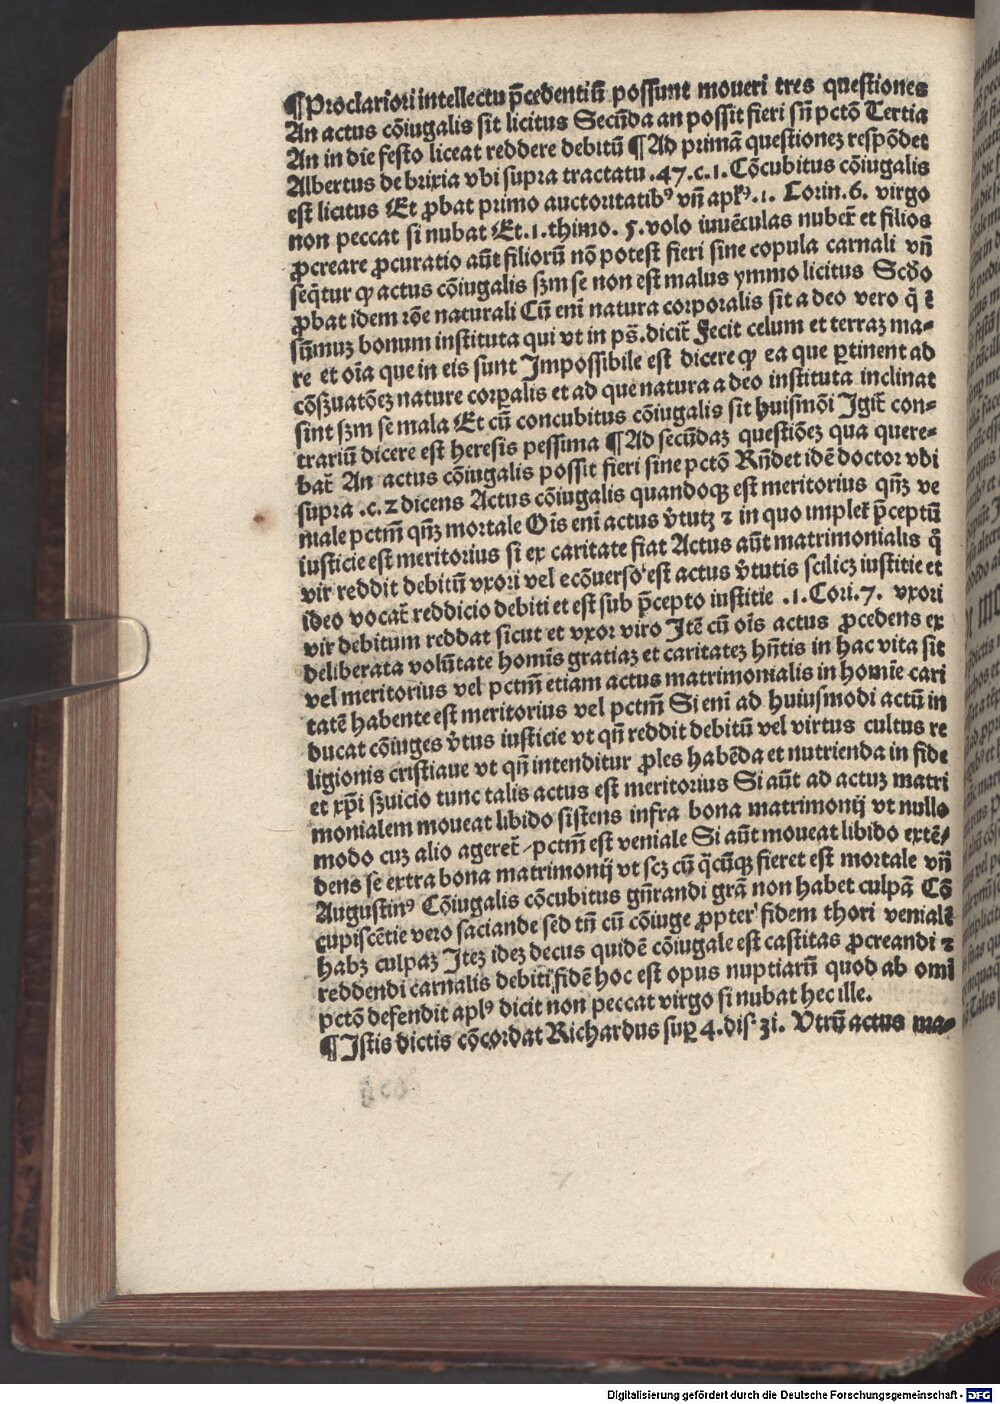 ¶Proclariori intellectu p̄cedentiū possunt moueri tres questiones
An actus cōiugalis sit licitus Secūda an possit fieri sn̄ pctō Tertia
An in die festo liceat reddere debitū ¶Ad primā questionez respōdet
Albertus de brixia vbi supra tractatu .47.c.1. Cōcubitus cōiugalis
est licitus Et ꝓbat primo auctoritatibꝰ vn̄ aplꝰ.1. Corin.6. virgo
non peccat si nubat Et.1.thimo. 5.volo iuuēculas nuber̄ et filios
ꝓcreare ꝓcuratio aūt filiorū nō potest fieri sine copula carnali vn̄
seq̄tur ꝙ actus cōiugalis sꝫm se non est malus ymmo licitus Scd̄o
ꝓbat idem rōe naturali Cū eni natura corporalis sit a deo vero q̄ ē
sūmuz bonum instituta qui vt in ps̄.dicit̄ Fecit celum et terraz ma⸗
re et oīa que in eis sunt Impossibile est dicere ꝙ ea que ꝑtinent ad
cōsꝫuatōeꝫ nature corꝑalis et ad que natura a deo instituta inclinat
sint sꝫm se mala Et cū concubitus cōiugalis sit huiſmōi Igit̄ con⸗
trariū dicere est heresis pessima ¶Ad secūdaz questiōeꝫ qua quere⸗
bat̄ An actus cōiugalis possit fieri sine pctō Rn̄det idē doctor vbi
supra .c.2 dicens Actus cōiugalis quandoqꝫ est meritorius qn̄ꝫ ve
niale pctm̄ qn̄ꝫ mortale Oīs eni actus v̄tutꝫ ⁊ in quo implet̄ p̄ceptū
iusticie est meritorius si ex caritate fiat Actus aūt matrimonialis q̄
vir reddit debitū vxori vel ecōuerso est actus v̄tutis scilicꝫ iustitie et
ideo vocat̄ reddicio debiti et est sub p̄cepto iustitie .1.Cori.7. vxori
vir debitum reddat sicut et vxor viro Itē cū oīs actus ꝓcedens ex
deliberata volūtate homīs gratiaz et caritateꝫ hn̄tis in hac vita sit
vel meritorius vel pctm̄ etiam actus matrimonialis in homīe cari
tatē habente est meritorius vel pctm̄ Si eni ad huiusmodi actū in
ducat cōiuges v̄tus iusticie vt qn̄ reddit debitū vel virtus cultus re
ligionis cristiaue vt qn̄ intenditur ꝓles habēda et nutrienda in fide
et xp̄i sꝫuicio tunc talis actus est meritorius Si aūt ad actuꝫ matri
monialem moueat libido sistens infra bona matrimonij vt nullo
modo cuꝫ alio ageret̄ pctm̄ est veniale Si aūt moueat libido extē⸗
dens se extra bona matrimonij vt scꝫ cū q̄cūqꝫ fieret est mortale vn̄
Augustinꝰ Cōiugalis cōcubitus gn̄randi grā non habet culpā Cō
cupiscētie vero saciande sed tn̄ cū cōiuge ꝓpter fidem thori venialē
habꝫ culpaꝫ Iteꝫ ideꝫ decus quidē cōiugale est castitas ꝓcreandi ⁊
reddendi carnalis debiti fidē hoc est opus nuptiarū quod ab omī
pctō defendit aplꝰ dicit non peccat virgo si nubat hec ille.
¶Istis dictis cōcordat Richardus suꝑ 4.dis. 31. Vtrū actus ma⸗
Digitalisierung gefördert durch die Deutsche Forschungsgemeinschaft - DFG